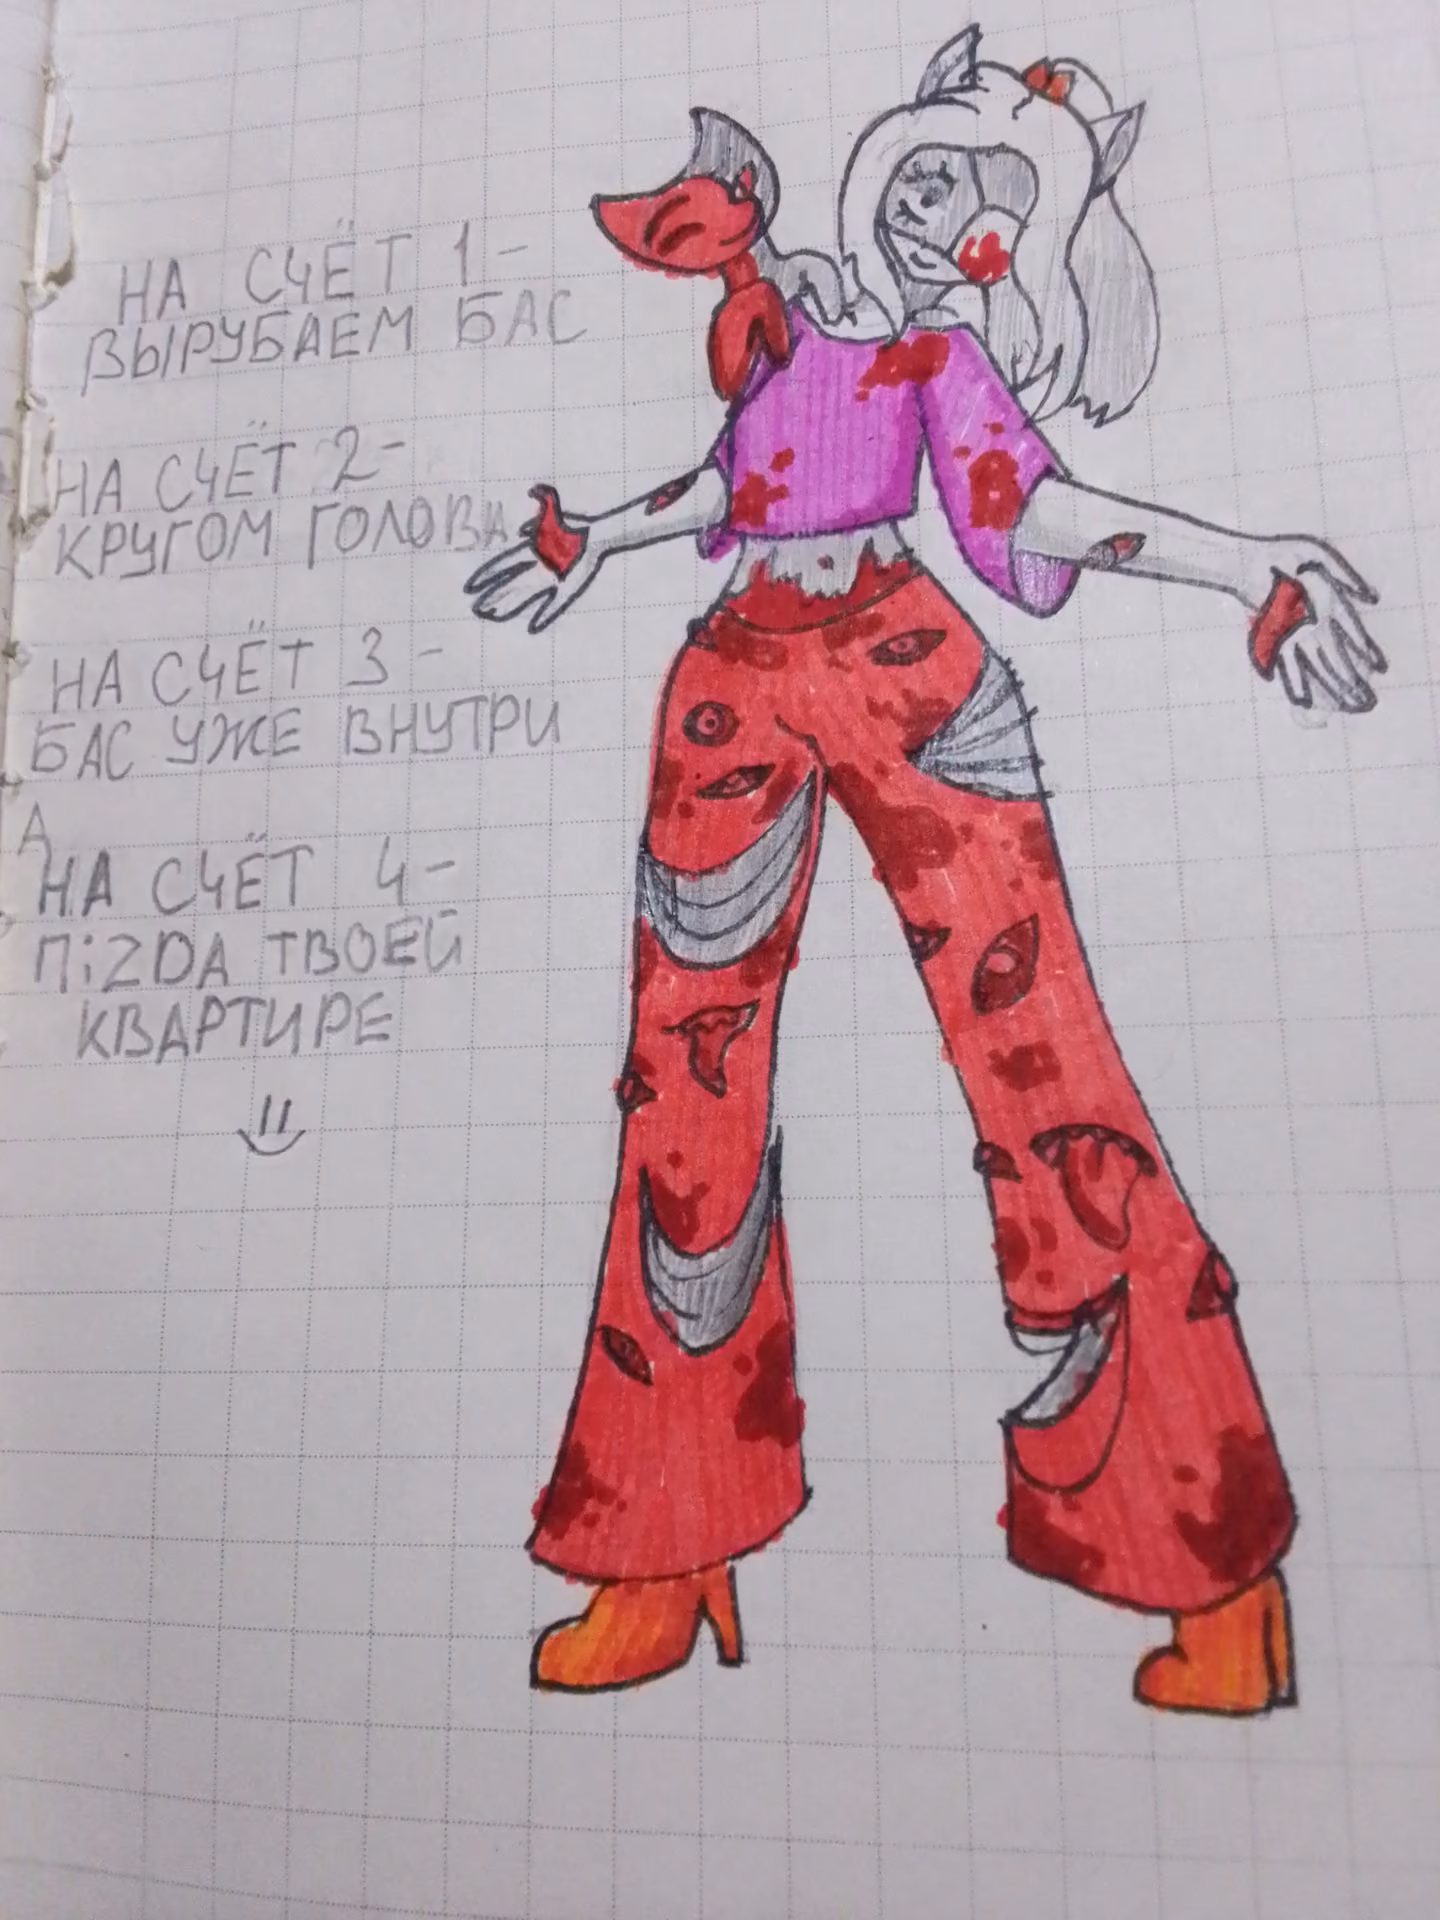 НА СЧЁТ 1-
ВЫРУБАЕМ БАС
НА СЧЁТ 2-
КРУГОМ ГОЛОВА
НА СЧЁТ 3-
БАС УЖЕ ВНУТРИ
А
НА СЧЁТ 4-
ПiZDA ТВОЕЙ
КВАРТИРЕ